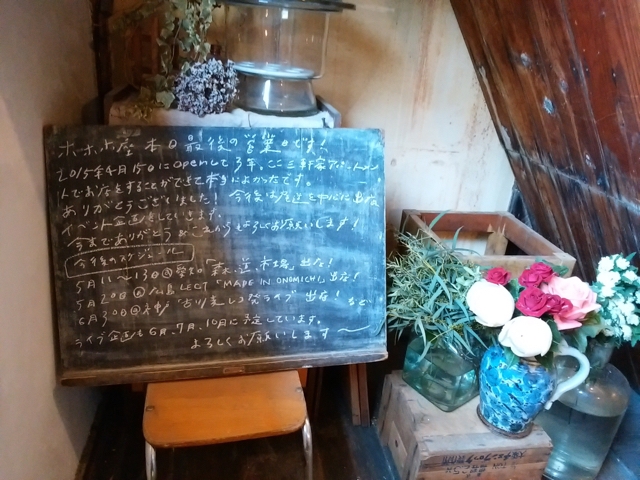 ホホホ座 本日最後の営業日です！
2015年4月15日にOpenして3年、ここ三軒家アパートメン
トでお店をすることができて本当によかったです。
ありがとうございました！ 今後は尾道を中心に出店
イベント企画をしていきます。
今までありがとう これからもよろしくお願いします！
今後のスケジュール
5月11〜13日 愛知「森、道、市場」出店！
5月20日 広島 LECT「MADE IN ONOMICHI」出店！
6月30日 ライブ 出店！ など
ライブ企画も6月、7月、10月に予定しています。
よろしくお願いします〜